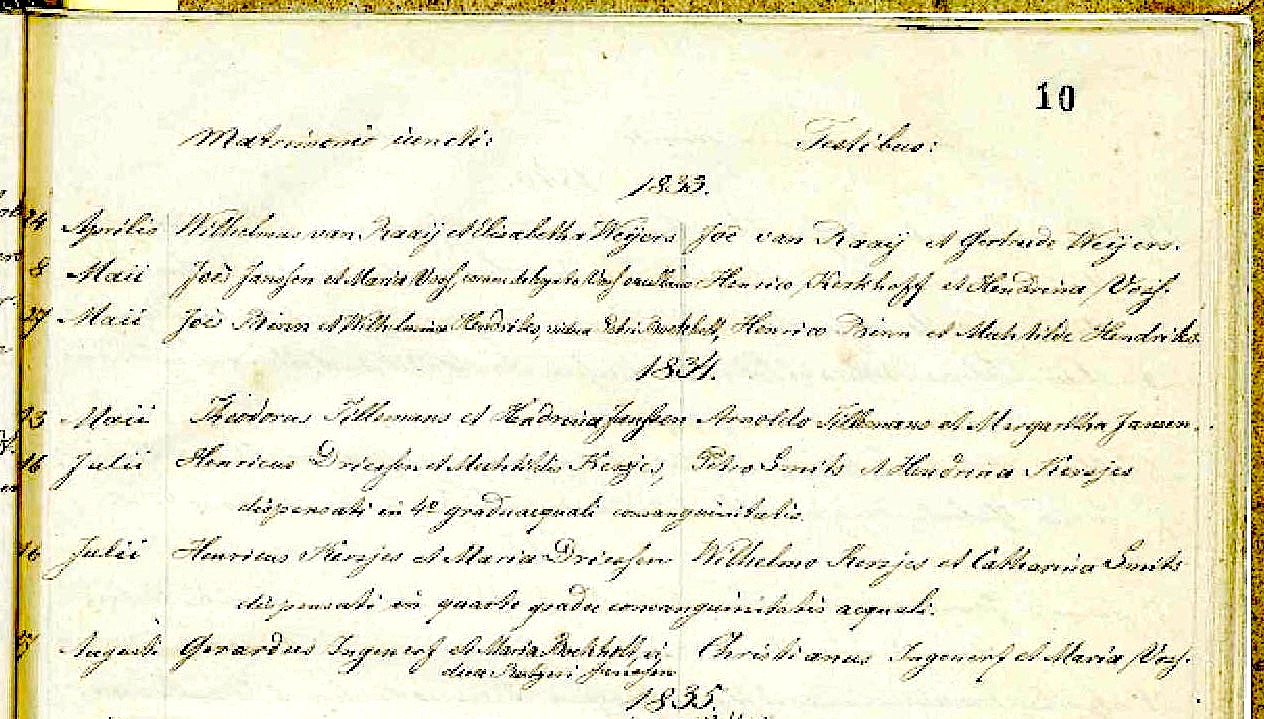 10
Matrimonio iuncti: Testibus:
1833.
24 Aprilis Wilhelmus van Raaij et Elisabetha Weijers Joë van Raaij et Gertrude Weijers.
8 Maii Joës Janssen et Maria Vosf, Henrico Kerkhoff et Hendrina Vosf.
27 Maii Joës Binn et Wilhelmina Hendriks, vidua Petri Bockholt, Henrico Binn et Mechtilde Hendriks.
1834.
13 Maii Theodorus Tillemans et Hendrina Janssen Arnoldo Tillemans et Margaretha Jansen.
16 Julii Henricus Driessen et Mechtildis Kersjes, Petro Smits et Hendrina Kersjes
dispensati in 4º gradu aequali consanguinitatis.
16 Julii Henricus Kersjes et Maria Driessen Wilhelmo Kersjes et Catharina Smits
dispensati in quarto gradu consanguinitatis aequali.
Augusti Gerardus Ingenerf et Maria Bockholt, vi- Christianus Ingenerf et Maria Vosf.
dua Janssen
1835.